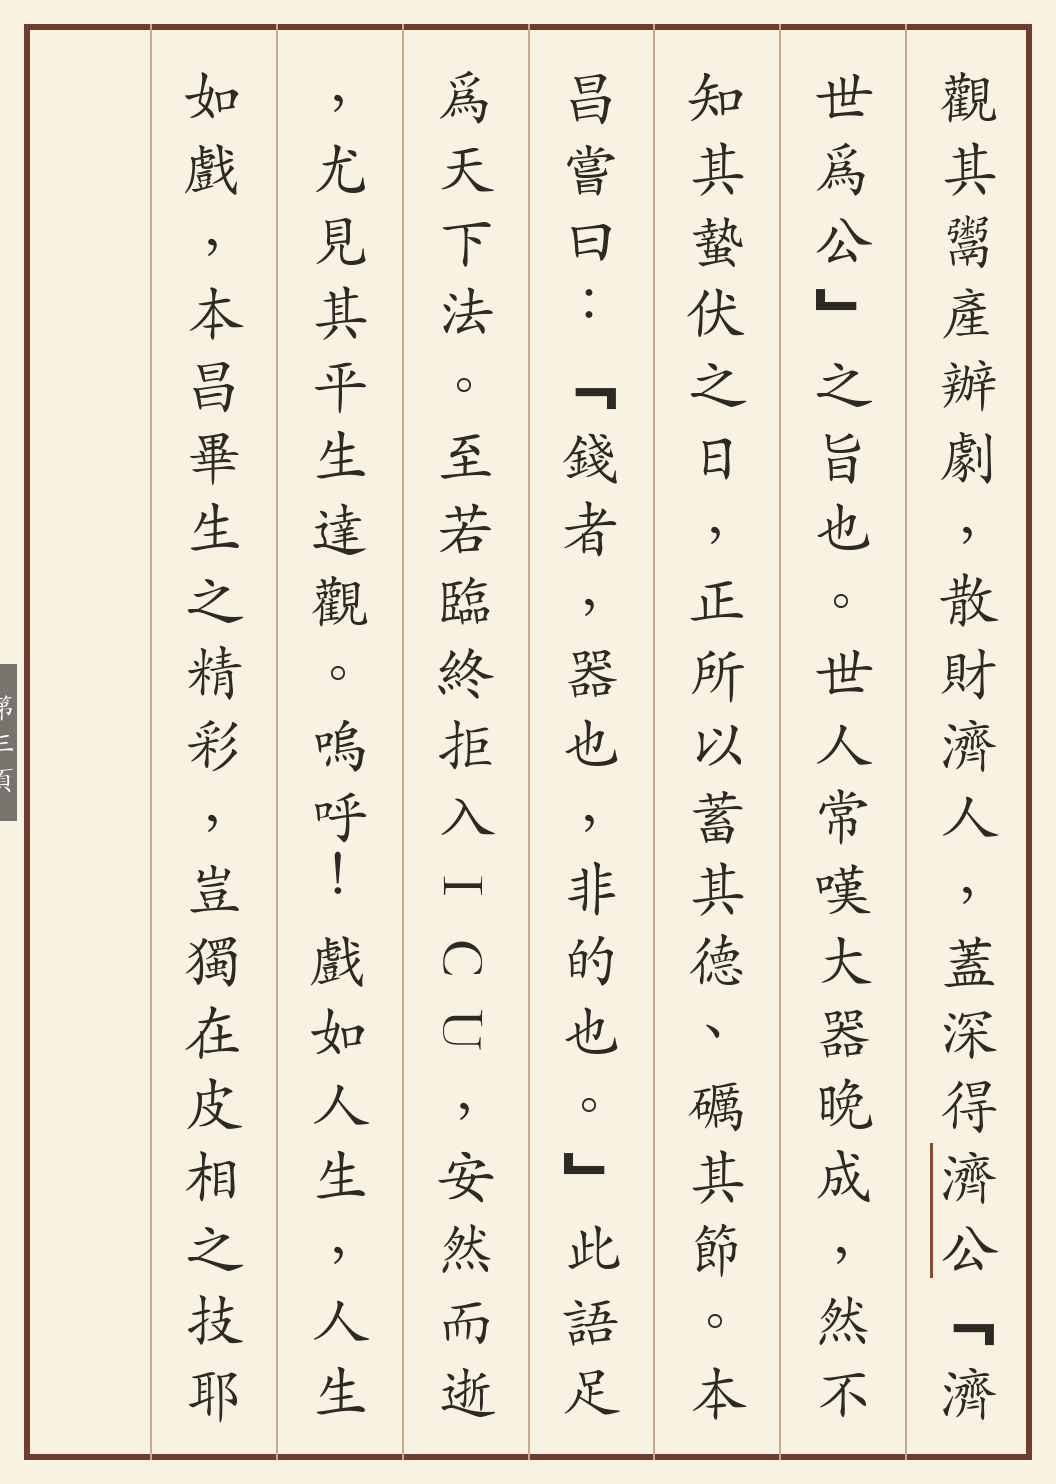 觀其鬻產辦劇，散財濟人，蓋深得濟公『濟
世爲公』之旨也。世人常嘆大器晚成，然不
知其蟄伏之日，正所以蓄其德、礪其節。本
昌嘗曰：『錢者，器也，非的也。』此語足
爲天下法。至若臨終拒入ICU，安然而逝
，尤見其平生達觀。嗚呼！戲如人生，人生
如戲，本昌畢生之精彩，豈獨在皮相之技耶
第三頁